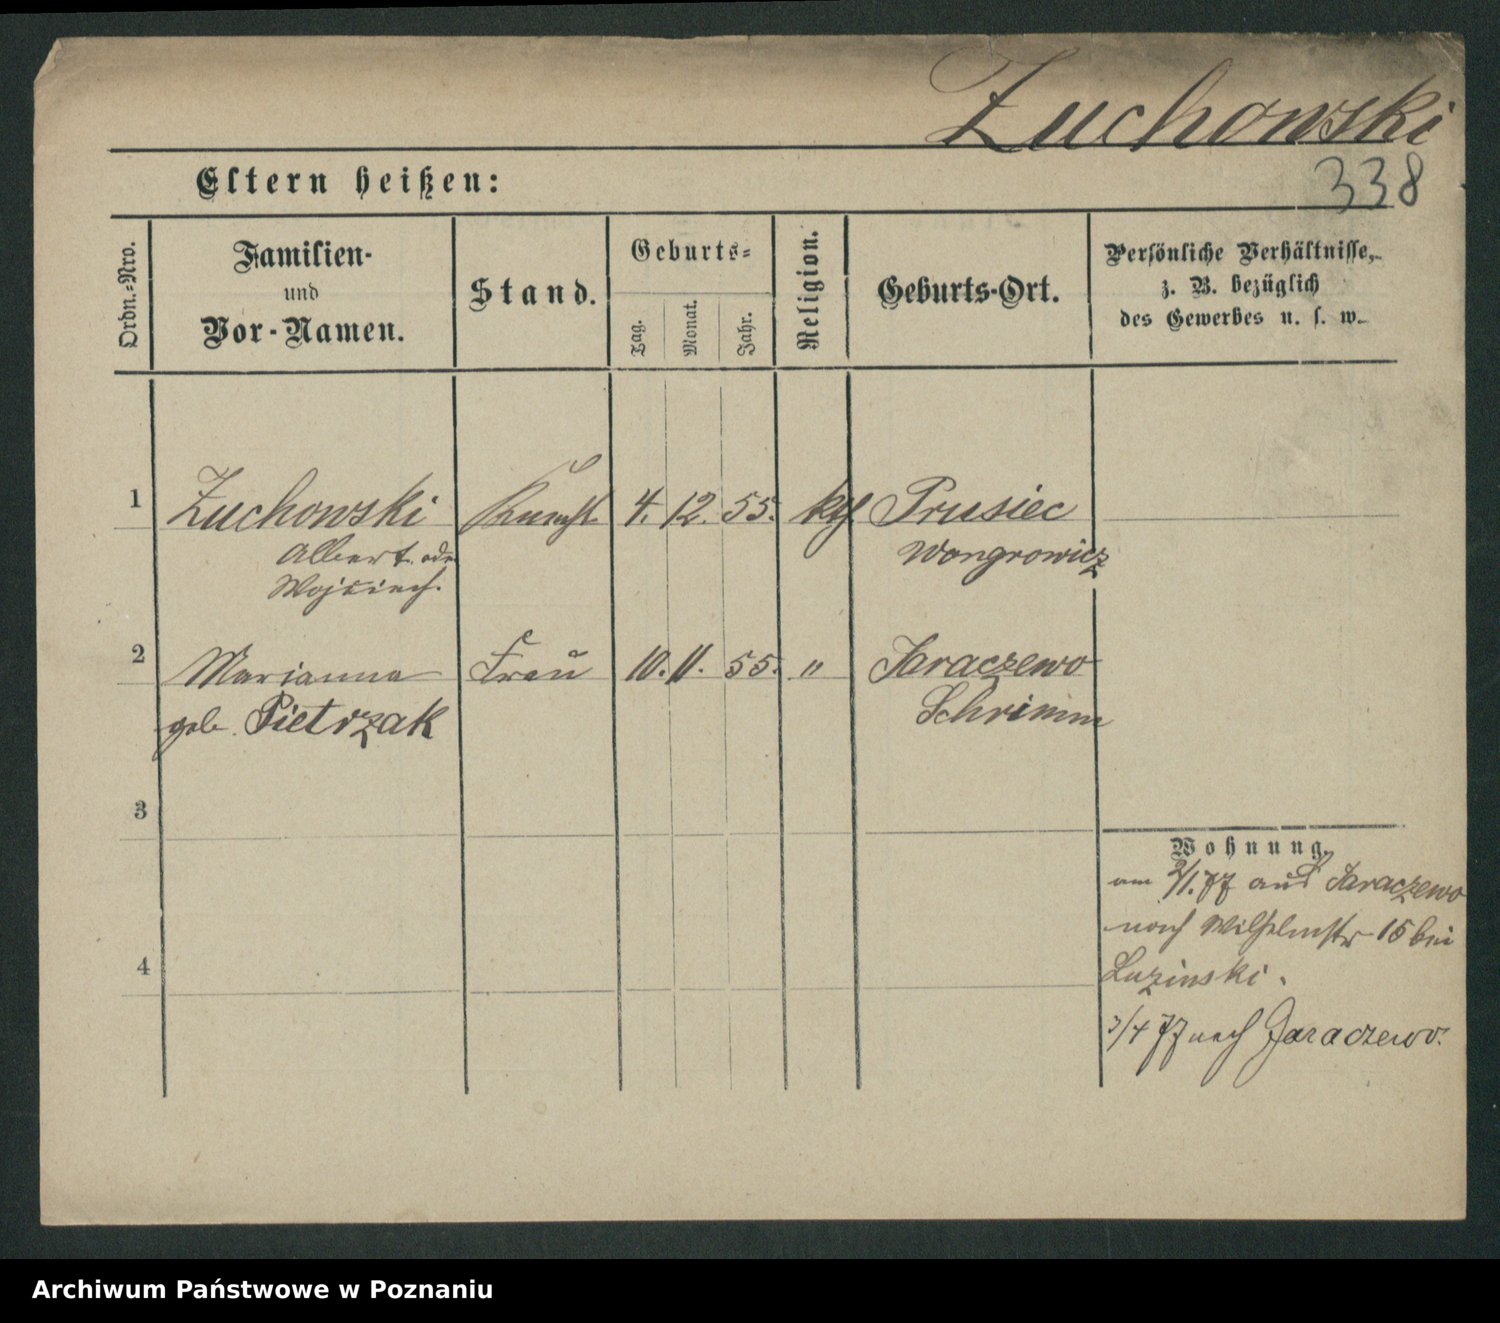 Zuchowski
338
Eltern heißen:
Ordn.-Nro.
Familien-
und
Vor-Namen.
Stand.
Geburts-
Tag.
Monat.
Jahr.
Religion.
Geburts-Ort.
Persönliche Verhältnisse,
z. B. bezüglich
des Gewerbes u. s. w.
1 Zuchowski Knecht 4. 12. 55. kth Prusiec
Albert oder Wongrowicz
Wojciech.
2 Marianna Frau 10. 11. 55. " Jaraczewo
geb. Pietrzak Schrimm
3
4
Wohnung.
am 2/1. 77 aus Jaraczewo
nach Wilhelmstr 15 bei
Luzinski.
3/4 77 nach Jaraczewo.
Archiwum Państwowe w Poznaniu